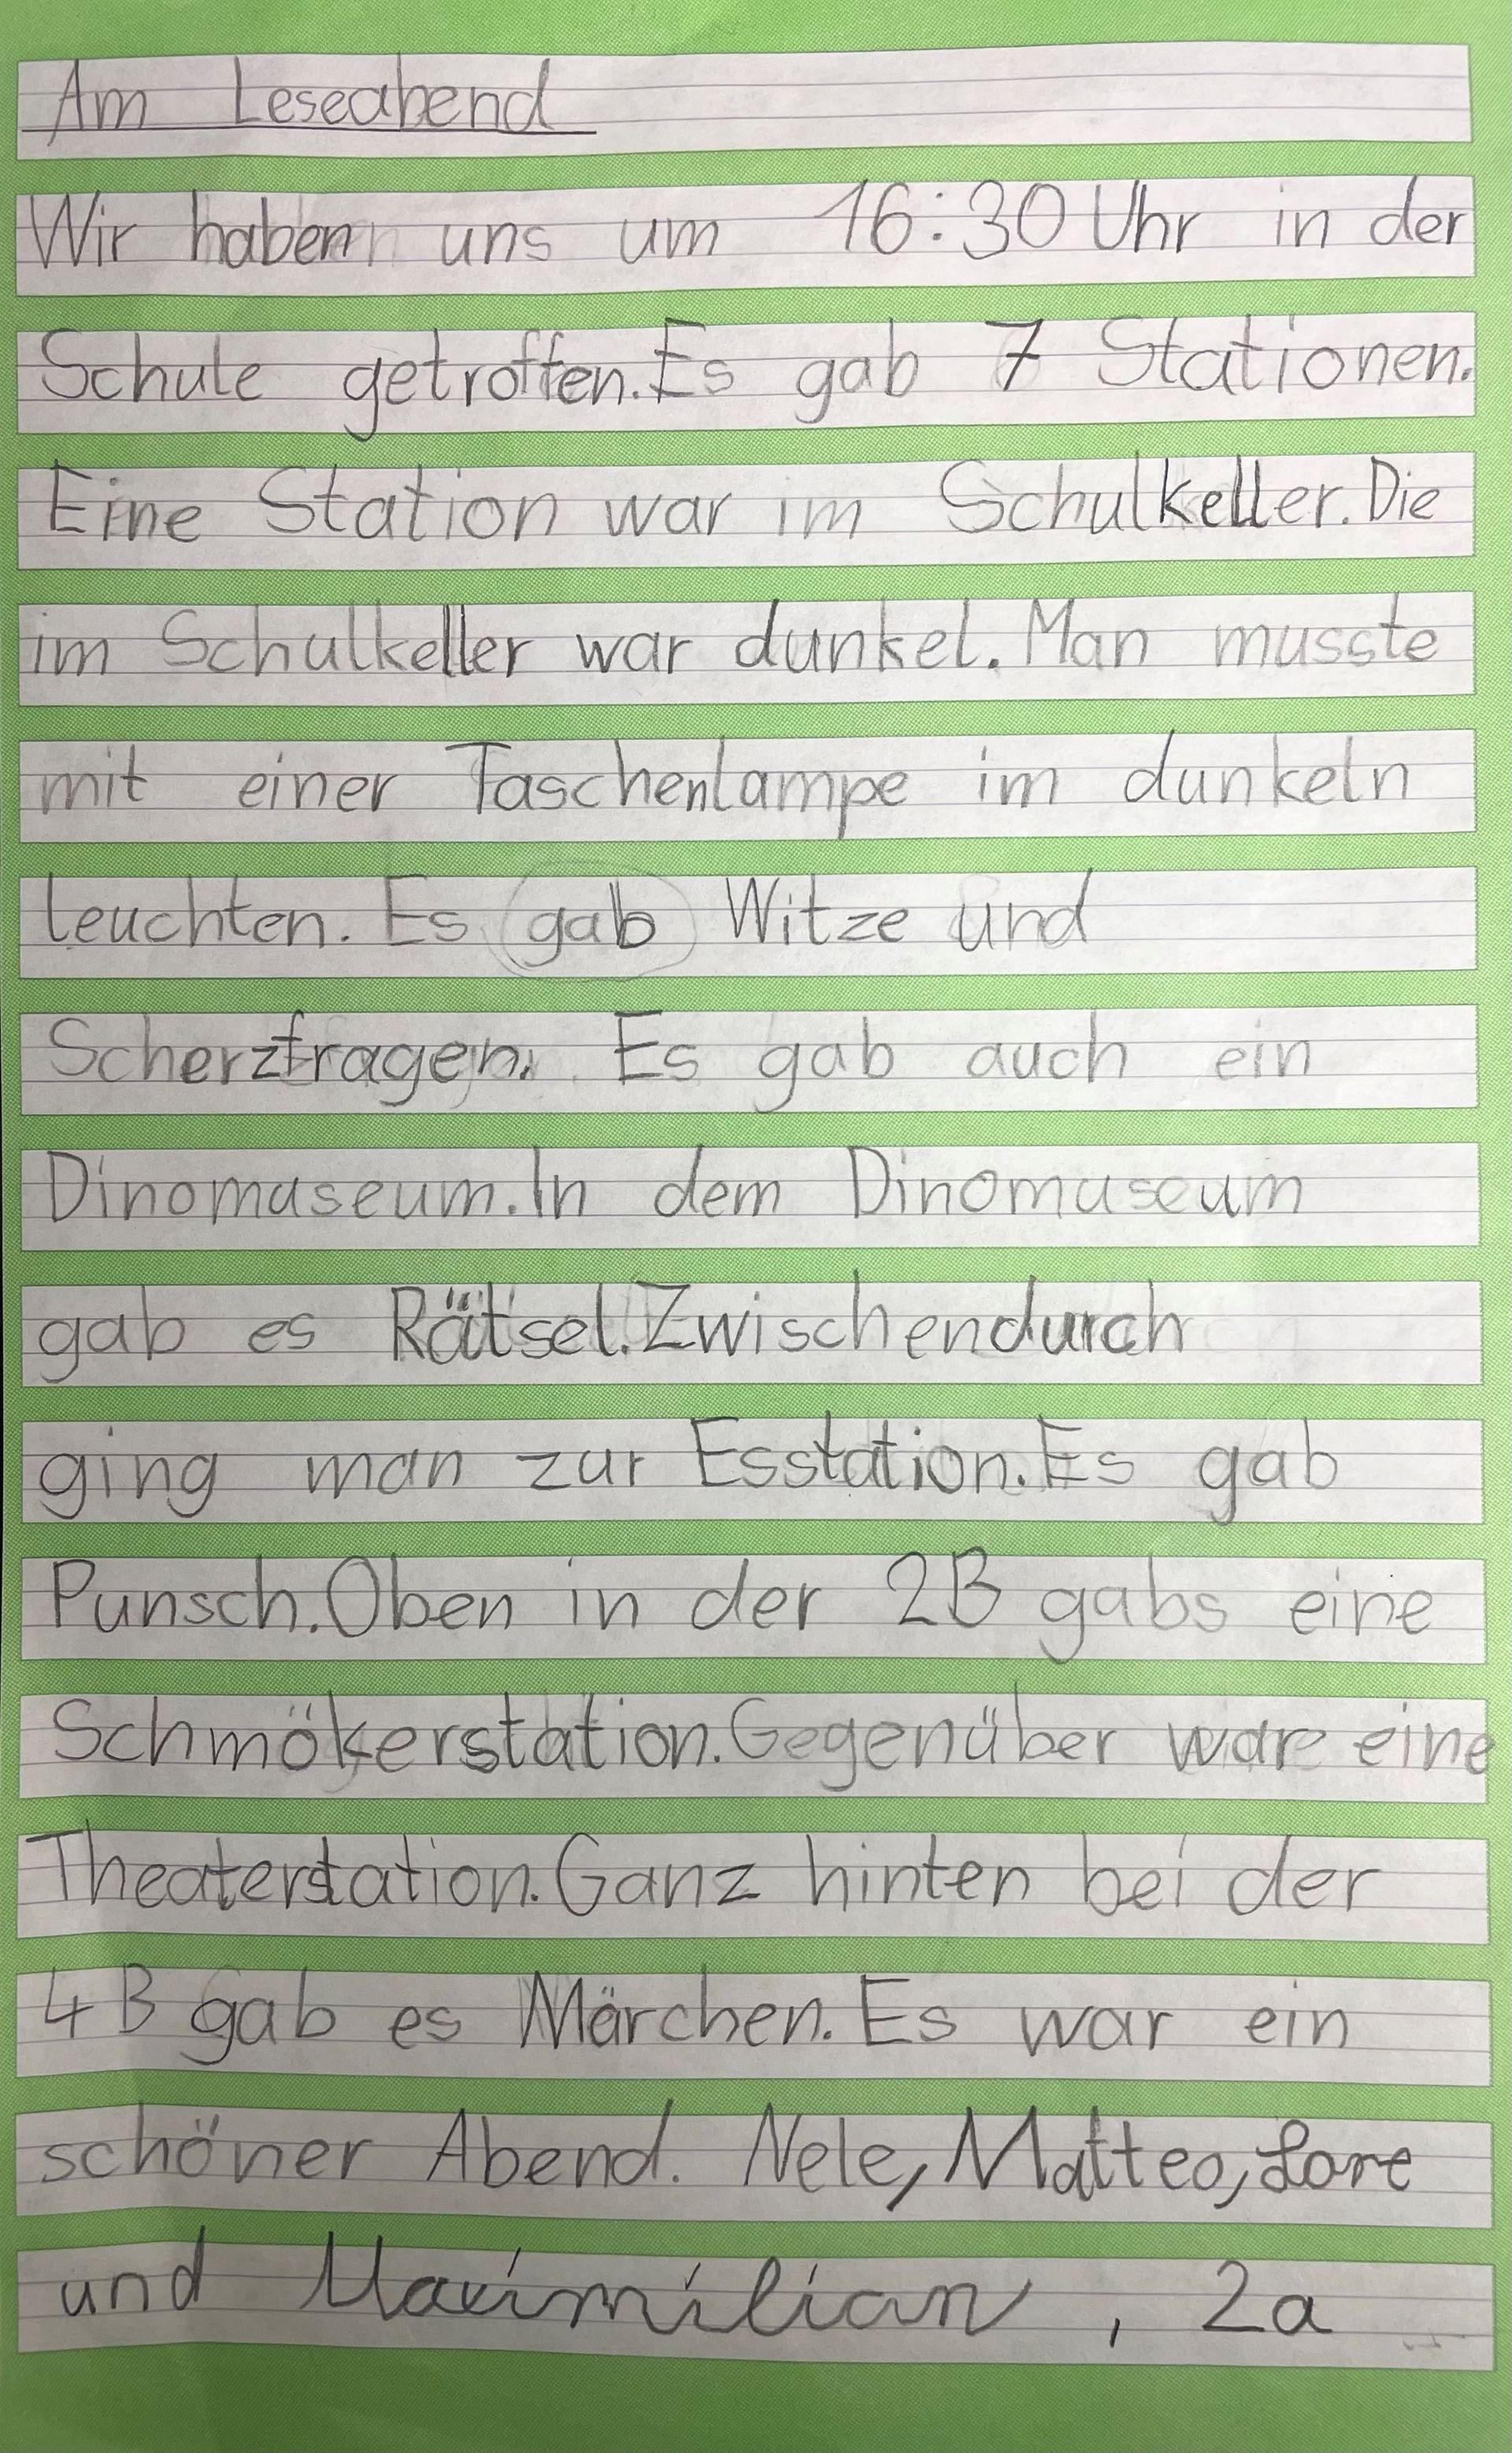 Am Leseabend
Wir haben uns um 16:30 Uhr in der
Schule getroffen. Es gab 7 Stationen.
Eine Station war im Schulkeller. Die
im Schulkeller war dunkel. Man musste
mit einer Taschenlampe im dunkeln
leuchten. Es gab Witze und
Scherzfragen. Es gab auch ein
Dinomuseum. In dem Dinomuseum
gab es Rätsel. Zwischendurch
ging man zur Esstation. Es gab
Punsch. Oben in der 2B gabs eine
Schmökerstation. Gegenüber war eine
Theaterstation. Ganz hinten bei der
4B gab es Märchen. Es war ein
schöner Abend. Nele, Matteo, Lore
und Maximilian, 2a